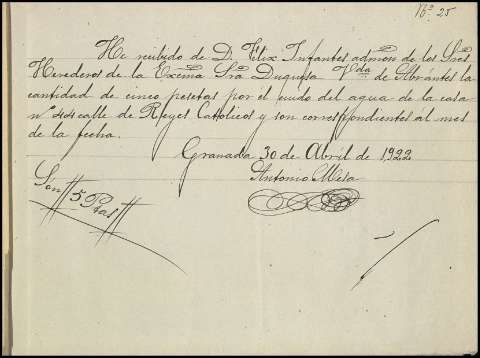 Nº 25
He recibido de D. Felix Infantes admon de los Sres
Herederos de la Excma Sra Duquesa Vda de Abrantes la
cantidad de cinco pesetas por el cuido del agua de la casa
nº calle de Reyes Catolicos y son correspondientes al mes
de la fecha.
Granada 30 de Abril de 1922
Antonio Mesa
Son # 5 Ptas #